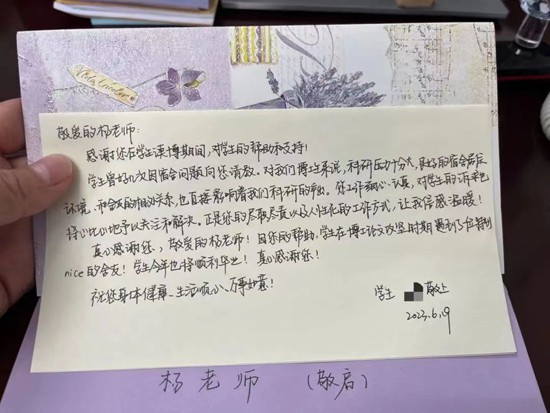 敬爱的杨老师:
感谢您在学生读博期间,对学生的帮助和支持!
学生曾好几次因宿舍问题向您请教。对我们博士来说,科研压力十分大,良好的宿舍居
环境、和舍友的相处关系,也直接影响着我们科研的产出。您工作细心、认真,对学生的诉求也
将心比心地予以关注和解决。正是您的尽职尽责以及人性化的工作方式,让我倍感温暖!
真心感谢您,敬爱的杨老师!因您的帮助,学生在博士论文攻坚时期遇到了一位特别
nice的舍友!学生今年也将顺利毕业!真心感谢您!
祝您身体健康、生活顺心、万事如意!
学生 敬上
2023.6.19
杨老师 (敬启)